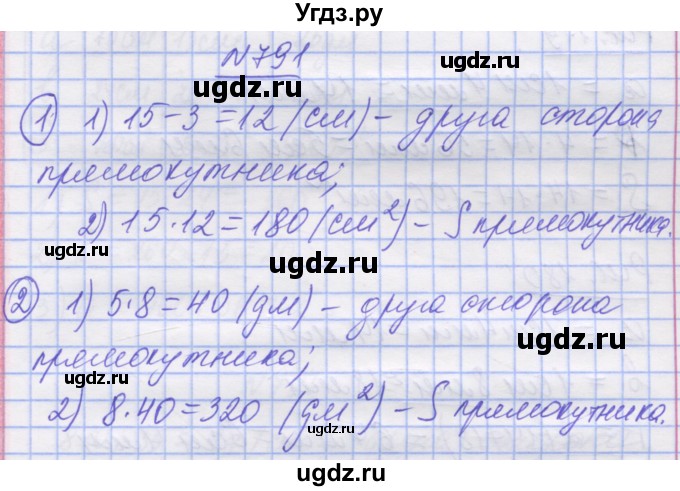 Угдз.ру
N791
gdz.ru
ugdz.ru
① 1) 15-3=12 (см) - друга сторона
прямокутника;
ugdz.ru
2) 15·12=180 (см²) - S прямокутника.
ugdz.ru
② 1) 5·8=40 (дм) - друга сторона
ugdz.ru
прямокутника;
ugdz.ru
2) 8·40=320 (дм²) - S прямокутника.
ugdz.ru
ugdz.ru